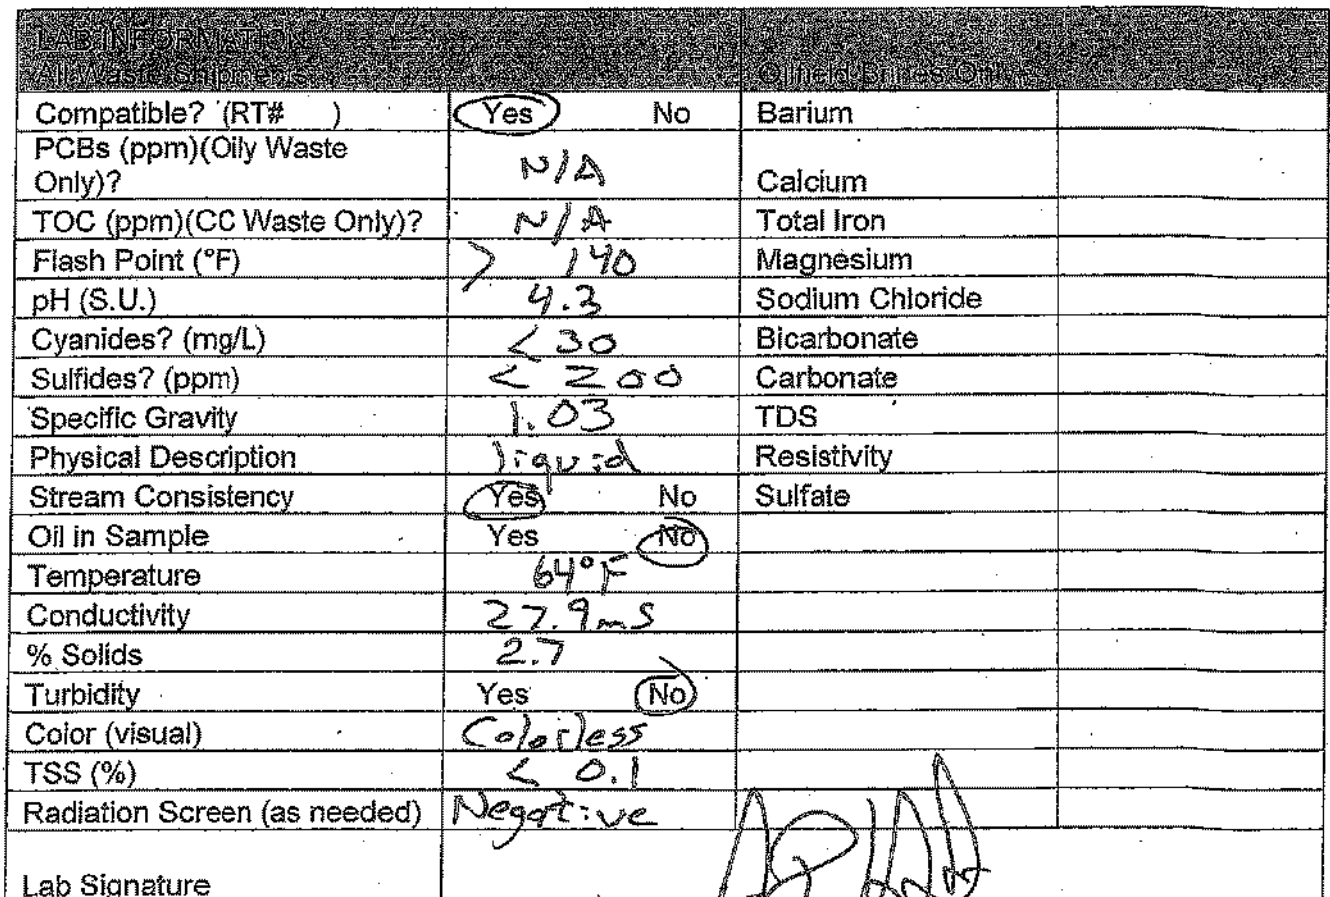 LAB INFORMATION
All Waste Shipments Oilfield Brines Only
Compatible? (RT# ) Yes No Barium
PCBs (ppm)(Oily Waste
Only)? N/A Calcium
TOC (ppm)(CC Waste Only)? N/A Total Iron
Flash Point (°F) > 140 Magnesium
pH (S.U.) 4.3 Sodium Chloride
Cyanides? (mg/L) <30 Bicarbonate
Sulfides? (ppm) < 200 Carbonate
Specific Gravity 1.03 TDS
Physical Description liquid Resistivity
Stream Consistency Yes No Sulfate
Oil in Sample Yes No
Temperature 64°F
Conductivity 27.9mS
% Solids 2.7
Turbidity Yes No
Color (visual) Colorless
TSS (%) < 0.1
Radiation Screen (as needed) Negative
Lab Signature